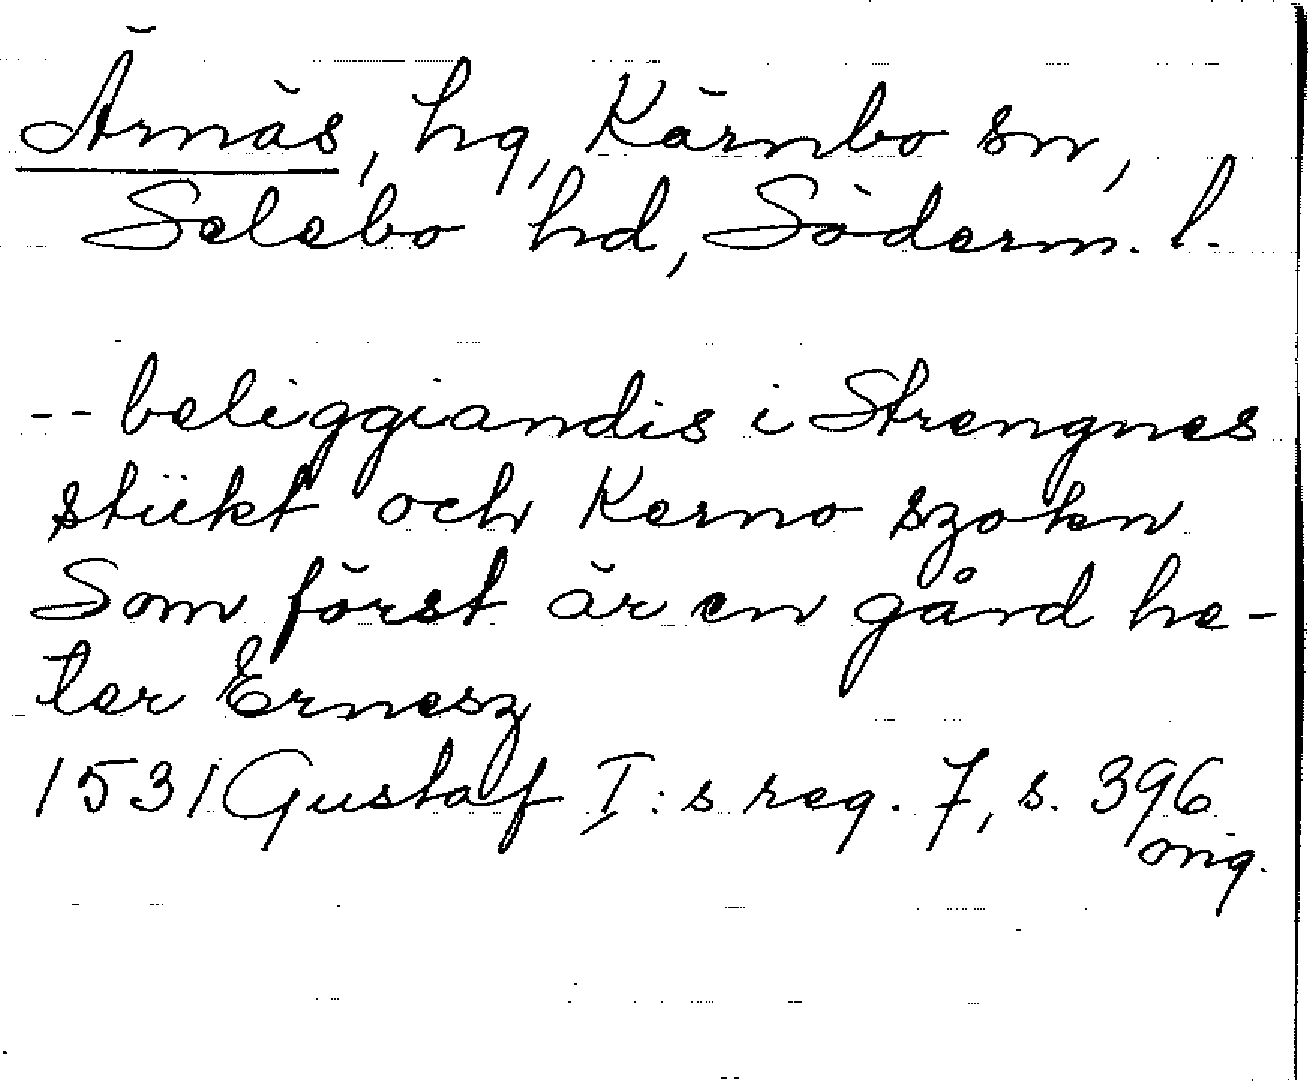 Ärnäs, hg, Kärnbo sn,
Selebo hd, Söderm. l.
-- beliggiandis i Strengnes
stükt och Kerno szokn
Som först är en gård he-
ter Ernesz
1531 Gustaf I:s reg. 7, s. 396
orig.